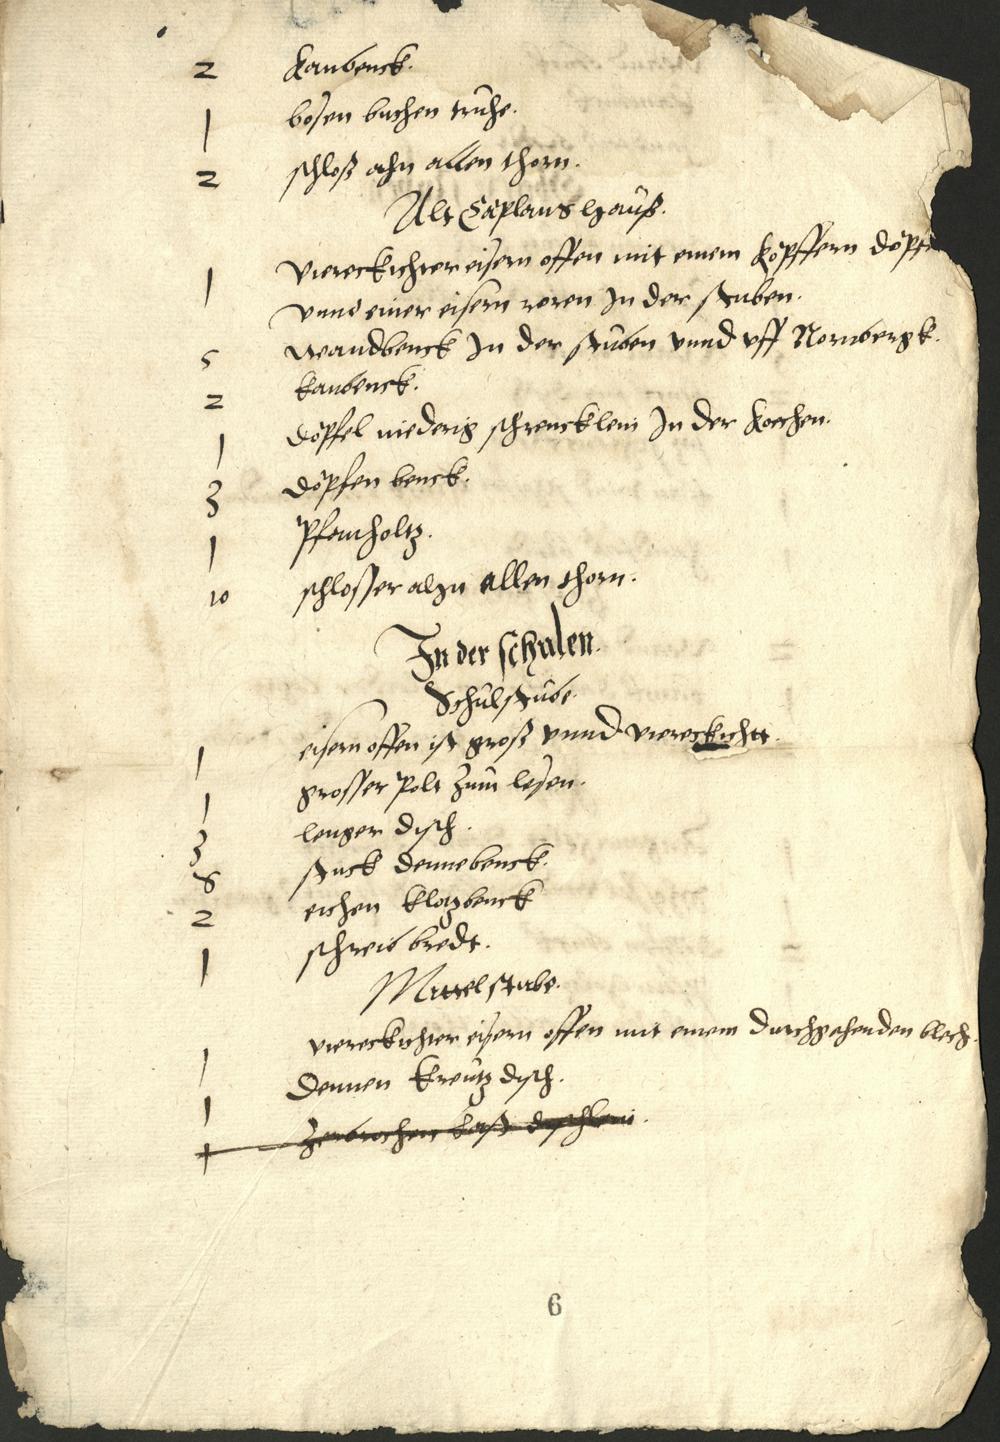 2 Kanbenck.
1 bosen buchen truhe.
2 schloß ahn allen thorn.
Alt Caplans hauß.
1 viereckichter eisern offen mit einem köpffern döpf
vnnd einer eisern roren In der stuben.
5 wandbenck In der stuben vnnd vff Nornbergk.
2 kanbenck.
1 döpfel niederig schrencklein In der Kochen.
3 döpfen benck.
1 Pfemholtz.
10 schlosser ahn allen thorn.
In der schulen.
Schulstube.
1 eisern offen ist groß vnnd viereckicht
1 grosser Polt zum lesen.
3 lenger disch.
8 stuck dennebenck.
2 eichen klotzbenck
1 schreib bredt.
Mittel stube.
1 viereckichter eisern offen mit einem durchgehenden blech.
1 Dennen kreutz disch.
1 zerbrochen dischlein.
6